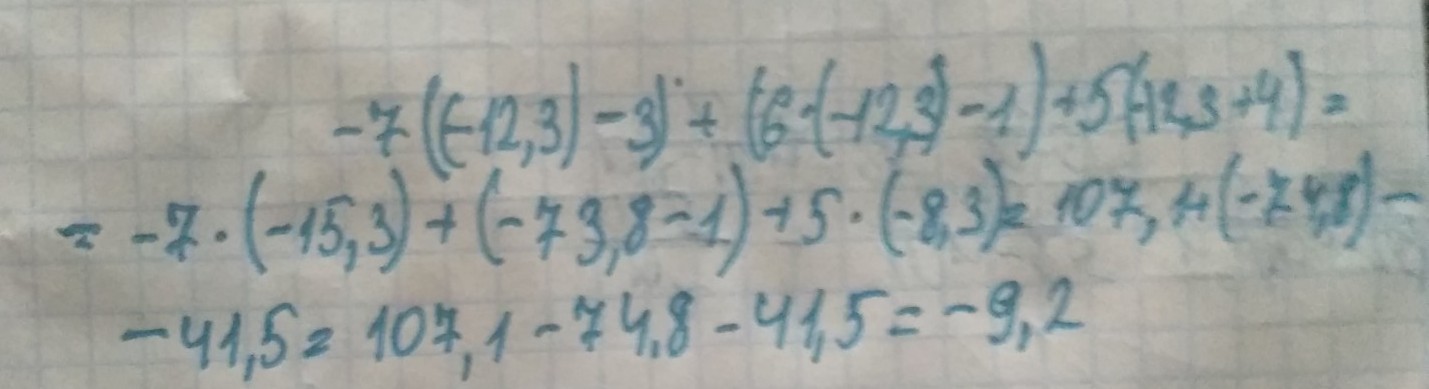 -7((-12,3)-3)+(6·(-12,3)-1)+5(-12,3+4)=
= -7·(-15,3)+(-73,8-1)+5·(-8,3)= 107,1+(-74,8)-
-41,5= 107,1-74,8-41,5=-9,2